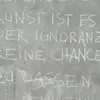 KUNST IST ES
DER IGNORANZ
KEINE CHANCE
ZU LASSEN